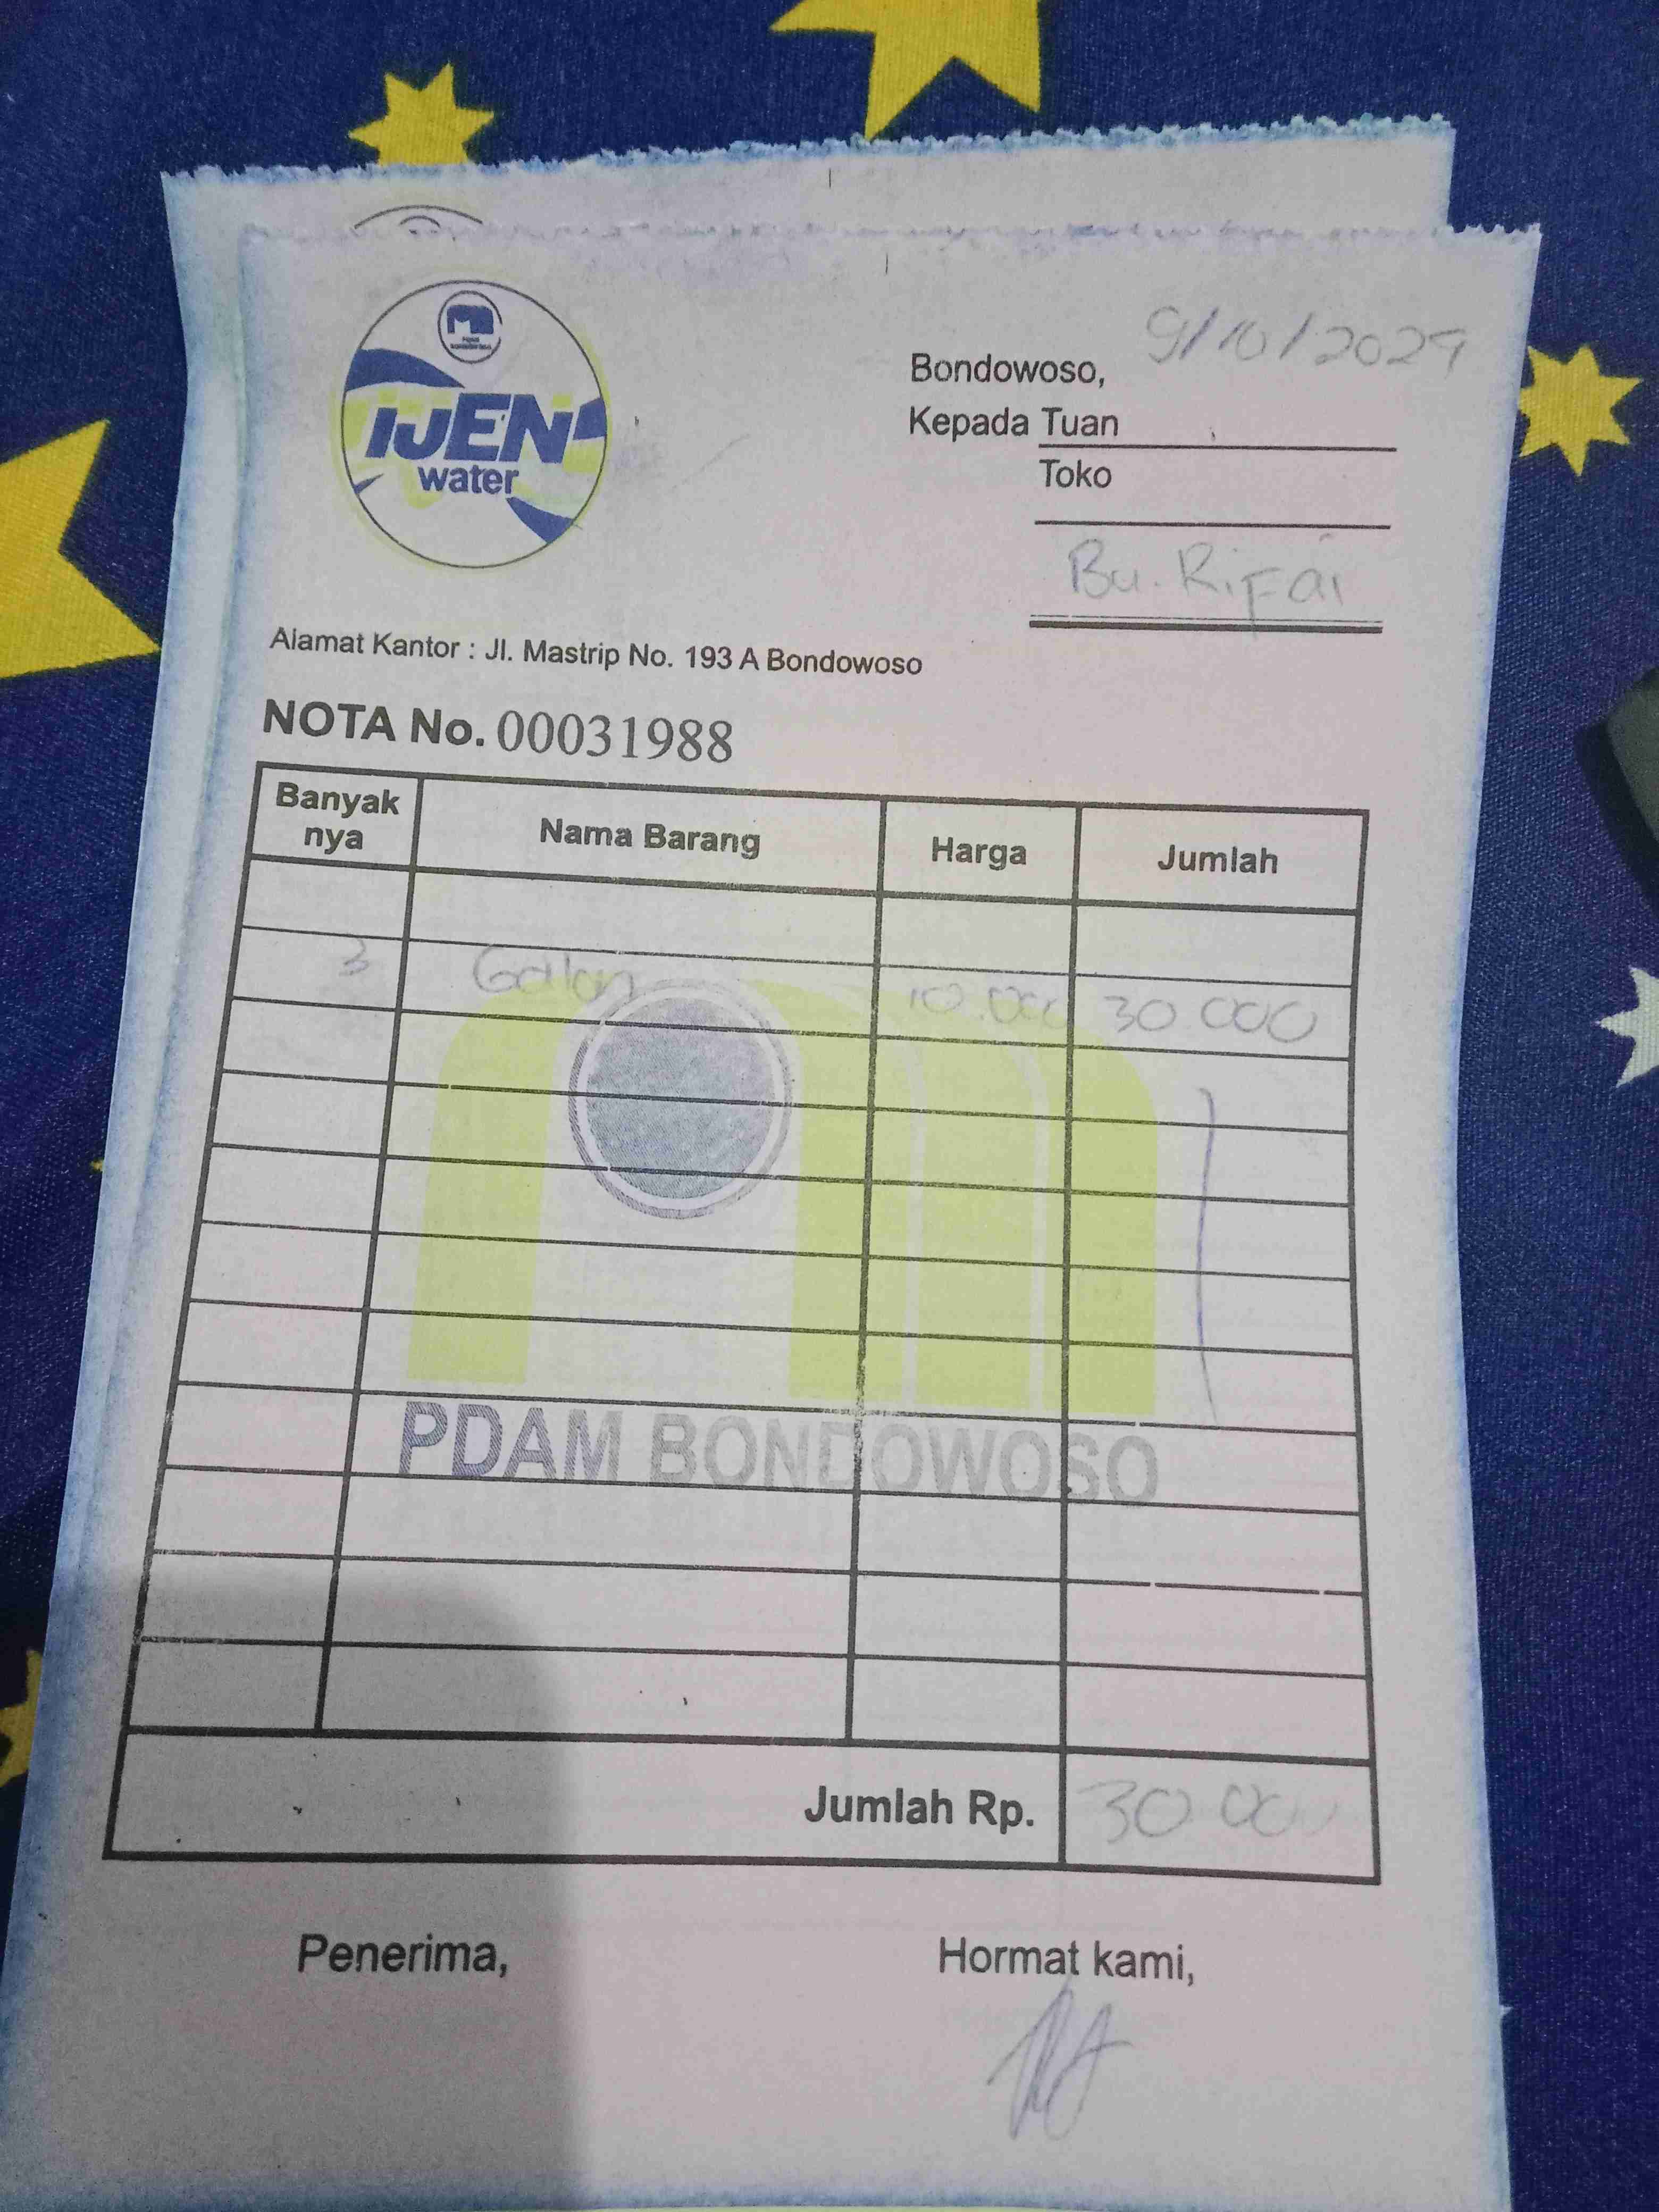 IJEN
water
Bondowoso, 9/10/2024
Kepada Tuan
Toko
Bu. Rifai
Alamat Kantor : Jl. Mastrip No. 193 A Bondowoso
NOTA No. 00031988
Banyak nya Nama Barang Harga Jumlah
3 Gallon 10.000 30 000
PDAM BONDOWOSO
Jumlah Rp. 30 000
Penerima, Hormat kami,